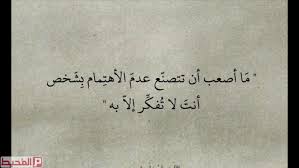 " مَا أصعب أن تتصنّع عدمَ الأهتِمام بِشَخص
أنتَ لا تُفكِّر إلاّ به "
المحيط